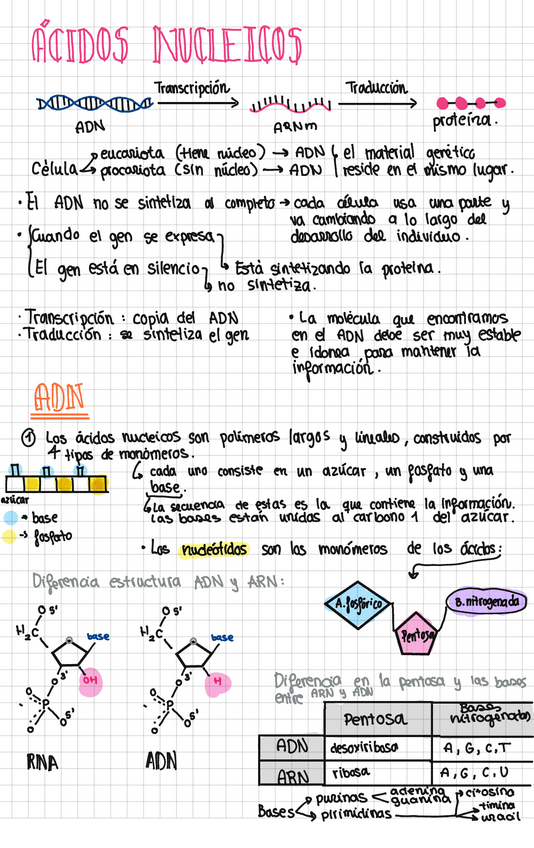 ÁCIDOS NUCLEICOS
Transcripción
Traducción
ADN
ARNm
proteína.
Célula
eucariota (tiene núcleo) → ADN
procariota (sin núcleo) → ADN
el material genético
reside en el mismo lugar.
· El ADN no se sintetiza al completo → cada célula usa una parte y
va cambiando a lo largo del
desarrollo del individuo.
· Cuando el gen se expresa
El gen está en silencio
Está sintetizando la proteína.
no sintetiza.
· Transcripción : copia del ADN
· Traducción : se sintetiza el gen
• La molécula que encontramos
en el ADN debe ser muy estable
e idónea para mantener la
información.
ADN
① Los ácidos nucleicos son polímeros largos y lineales, construidos por
4 tipos de monómeros.
cada uno consiste en un azúcar, un fosfato y una
base.
La secuencia de estas es la que contiene la información.
Las bases están unidas al carbono 1 del azúcar.
azúcar
→ base
→ fosfato
· Los nucleótidos son los monómeros de los ácidos:
A.fosfórico
Pentosa
B.nitrogenada
Diferencia estructura ADN y ARN:
O 5'
H₂C
base
3'
OH
O
P
O 5'
RNA
O 5'
H₂C
base
3'
H
O
P
O 5'
ADN
Diferencia en la pentosa y las bases
entre ARN y ADN
Pentosa
Bases
nitrogenadas
ADN
desoxiribosa
A, G, C, T
ARN
ribosa
A, G, C, U
Bases
purinas
adenina
guanina
pirimidinas
citosina
timina
uracil